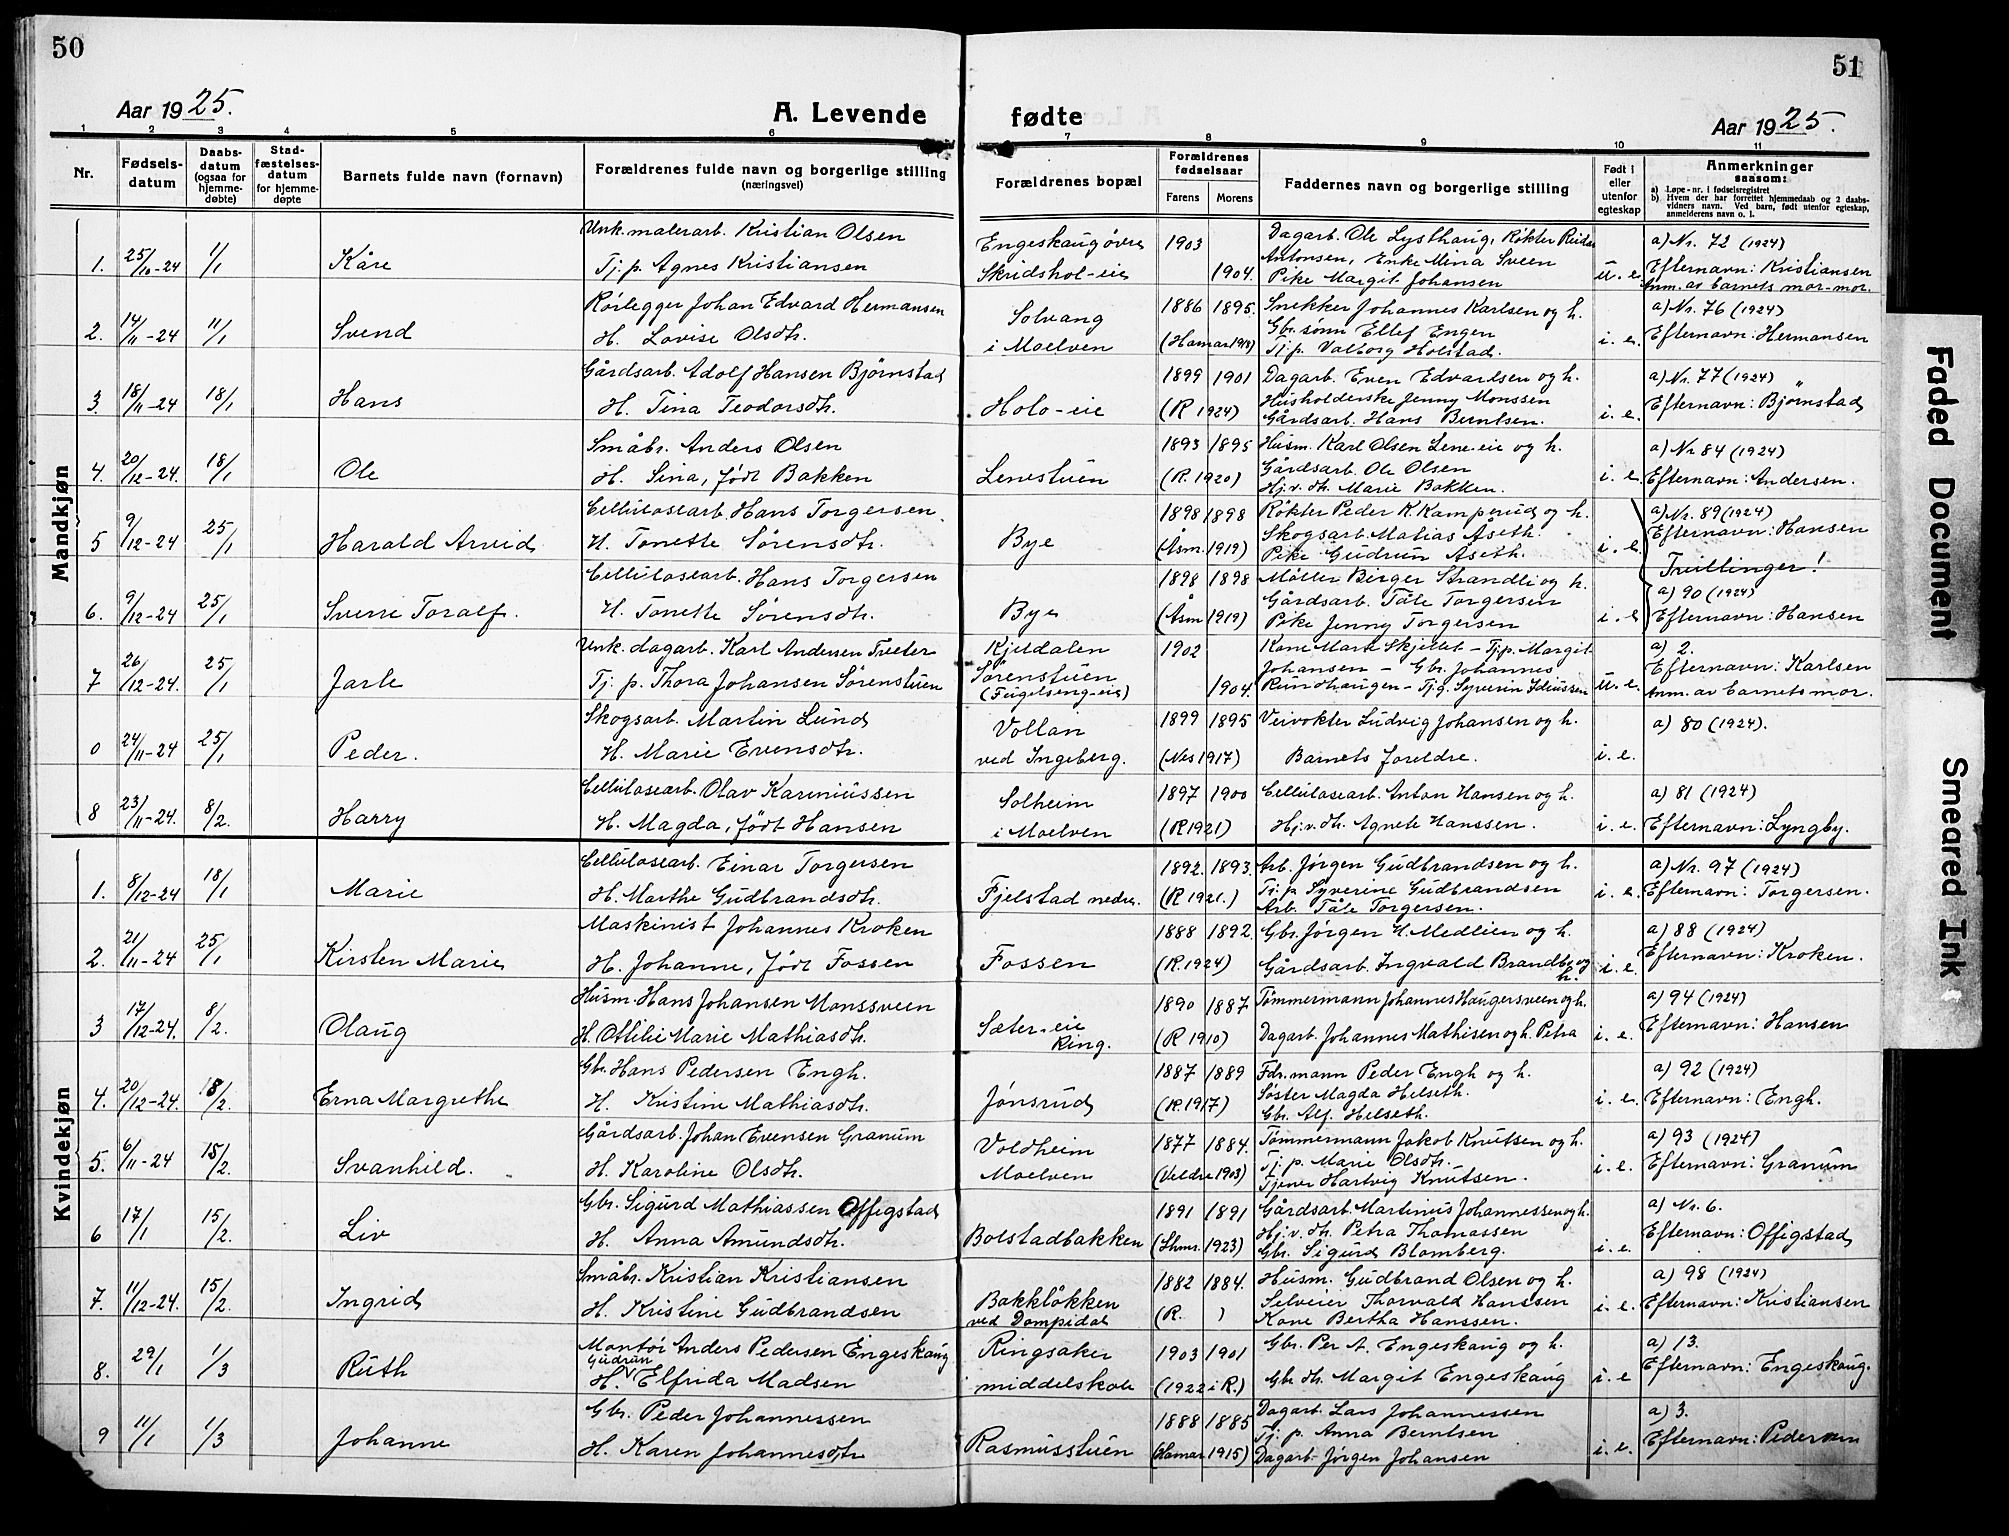 50
51
Aar 1925.
A. Levende
fødte
Aar 1925.
1 2 3 4 5 6 7 8 9 10 11
Nr.
Fødsels-
datum
Daabs-
datum
(ogsaa for
hjemme-
døbte)
Stad-
fæstelses-
datum
for hjemme-
døpte
Barnets fulde navn (fornavn)
Forældrenes fulde navn og borgerlige stilling
(næringsvei)
Forældrenes bopæl
Forældrenes
fødselsaar
Farens Morens
Faddernes navn og borgerlige stilling
Født i
eller
utenfor
egteskap
Anmerkninger
saasom:
a) Løpe-nr. i fødselsregistret
b) Hvem der har forrettet hjemmedaab og 2 daabs-
vidners navn. Ved barn, født utenfor egteskap,
anmelderens navn o. l.
Mandkjøn
1. 25/10-24 1/1 Kåre
Unk. malerarb. Kristian Olsen
Tj. p. Agnes Kristiansen
Engeskaug øvre
Skridshol-eie
1903 1904.
Dagarb. Ole Lysthaug, Røkter Reidar
Antonsen, Enke Mina Sveen
Pike Margit Johansen
u. e.
a) Nr. 72 (1924)
Efternavn: Kristiansen
Anm. av barnets mor-mor.
2. 14/11-24 11/1 Svend
Rørlegger Johan Edvard Hermansen
H. Lovise Olsdtr.
Solvang
i Moelven
1886 1895.
(Hamar 1918)
Snekker Johannes Karlsen og h.
Gbr. sønn Ellef Engen
Tj. p. Valborg Holstad.
i. e.
a) Nr. 76 (1924)
Efternavn: Hermansen
3. 18/11-24 18/1 Hans
Gårdsarb. Adolf Hansen Bjørnstad
H. Tina Teodorsdtr.
Holo-eie
1899 1901
(R 1924)
Dagarb. Even Edvardsen og h.
Husholderske Jenny Monssen
Gårdsarb. Hans Berntsen.
i. e.
a) Nr. 77 (1924)
Efternavn: Bjørnstad
4. 20/12-24. 18/1 Ole
Småbr. Anders Olsen
H. Sina, født Bakken
Lenestuen
1893 1895
(R. 1920)
Husm. Karl Olsen Lene-eie og h.
Gårdsarb. Ole Olsen
Hj.v. dtr. Marie Bakken.
i. e.
a) Nr 84 (1924)
Efternavn: Andersen.
5 9/12-24 25/1 Harald Arvid
Cellulosearb. Hans Torgersen
H. Tonette Sørensdtr.
Bye
1898 1898
(Åsm. 1919)
Røkter Peder K. Kamperud og h.
Skogsarb. Matias Åseth.
Pike Gudrun Åseth.
i. e.
a) Nr. 89 (1924)
Efternavn: Hansen
Tvillinger!
6. 9/12-24 25/1 Sverre Toralf.
Cellulosearb. Hans Torgersen
H. Tonette Sørensdtr.
Bye
1898 1898
(Åsm 1919)
Møller Birger Strandli og h.
Gårdsarb. Tåle Torgersen
Pike Jenny Torgersen
i. e
a) 90 (1924)
Efternavn: Hansen
7 26/12-24. 25/1 Jarle
Unk. dagarb. Karl Andersen Tveter
Tj. p. Thora Johansen Sørenstuen
Kjeldalen
Sørenstuen
(Fugelseng-eie)
1902 1904.
Kone Mara Skjellet - Tj.p. Margit
Johansen - Gbr. Johannes
Rundhaugen - Tj.g. Syverin Idiussen
u. e.
a) 2.
Efternavn: Karlsen
Anm. av barnets mor.
0 24/11-24 25/1 Peder.
Skogsarb. Martin Lund
H. Marie Evensdtr.
Vollan
ved Ingeberg.
1899 1895
(Nes 1917)
Veivokter Ludvig Johansen og h.
Barnets foreldre.
i. e.
a) 80 (1924).
8 23/11-24. 8/2. Harry
Cellulosearb. Olav Kareniussen
H. Magda, født Hansen
Solheim
i Moelven
1897 1900
(R 1921)
Cellulosearb. Anton Hansen og h.
Hj.v. dtr. Agnete Hanssen.
i. e.
a) 81 (1924)
Efternavn: Lyngby.
Kvindekjøn
1. 8/12-24 18/1 Marie
Cellulosearb. Einar Torgersen
H. Marthe Gudbrandsdtr.
Fjelstad nedre.
1892. 1893.
(R 1921.)
Arb. Jørgen Gudbrandsen og h.
Tj. p. Syverine Gudbrandsen
Arb. Tåle Torgersen.
i. e.
a) Nr. 97 (1924)
Efternavn: Torgersen.
2. 21/11-24 25/1 Kirsten Marie
Maskinist Johannes Kroken
H. Johanne, født Fossen
Fossen
1888 1892.
(R. 1924)
Gbr. Jørgen H. Medlien og h.
Gårdsarb. Ingvald Brandby og
h.
i. e.
a) 88 (1924)
Efternavn: Kroken.
3 17/12-24. 8/2. Olaug
Husm. Hans Johansen Monssveen
H. Ottilie Marie Mathiasdtr.
Sæter-eie
Ring.
1890 1887
(R 1910)
Tømmermann Johannes Haugersveen og h.
Dagarb. Johannes Mathisen og h. Petra
i. e.
a) 94 (1924)
Efternavn: Hansen
4. 20/12-24. 18/2. Erna Margrethe
Gbr. Hans Pedersen Engh.
H. Kristine Mathiasdtr.
Jønsrud
1887 1889
(R. 1917)
Fdr. mann Peder Engh og h.
Søster Magda Helseth.
Gbr. Alf. Helseth.
i. e.
a) 92 (1924)
Efternavn: Engh.
5. 6/11-24 15/2. Svanhild.
Gårdsarb. Johan Evensen Granum
H. Karoline Olsdtr.
Voldheim
Moelven
1877 1884.
(Veldre 1903)
Tømmermann Jakob Knutsen og h.
Tj. p. Marie Olsdtr.
Tjener Hartvig Knutsen.
i. e.
a) 93 (1924)
Efternavn: Granum
6 17/1 15/2. Liv
Gbr. Sigurd Mathiassen Offigstad
H. Anna Amundsdtr.
Bolstadbakken
1891 1891
(Lhmr. 1923)
Gårdsarb Martinus Johannessen og h.
Hj.v. dtr. Petra Thomassen
Gbr. Sigurd Blomberg.
i. e.
a) Nr. 6.
Efternavn: Offigstad
7. 11/12-24. 15/2. Ingrid
Småbr. Kristian Kristiansen
H. Kristine Gudbrandsen
Bakkløkken
ved Dompidal
1882 1884.
(R. )
Husm. Gudbrand Olsen og h.
Selveier Thorvald Hanssen
Kone Bertha Hanssen.
i. e.
a) 98 (1924)
Efternavn: Kristiansen
8. 29/1 1/3 Ruth
Montør Anders Pedersen Engeskaug
Gudrun
H. Elfrida Madsen
Ringsaker
middelskole
1903 1901
(1922 i R.)
Gbr. Per A. Engeskaug og h.
Gbr. dtr. Margit Engeskaug
i. e
a) 13.
Efternavn: Engeskaug.
9 11/1 1/3 Johanne
Gbr. Peder Johannessen
H. Karen Johannesdtr
Rasmusstuen
1888 1885
(Hamar 1915)
Dagarb. Lars Johannessen
Tj. p. Anna Berntsen
Dagarb. Jørgen Johansen
i. e.
a) 3.
Efternavn: Pedersen
Faded Document
Smeared Ink